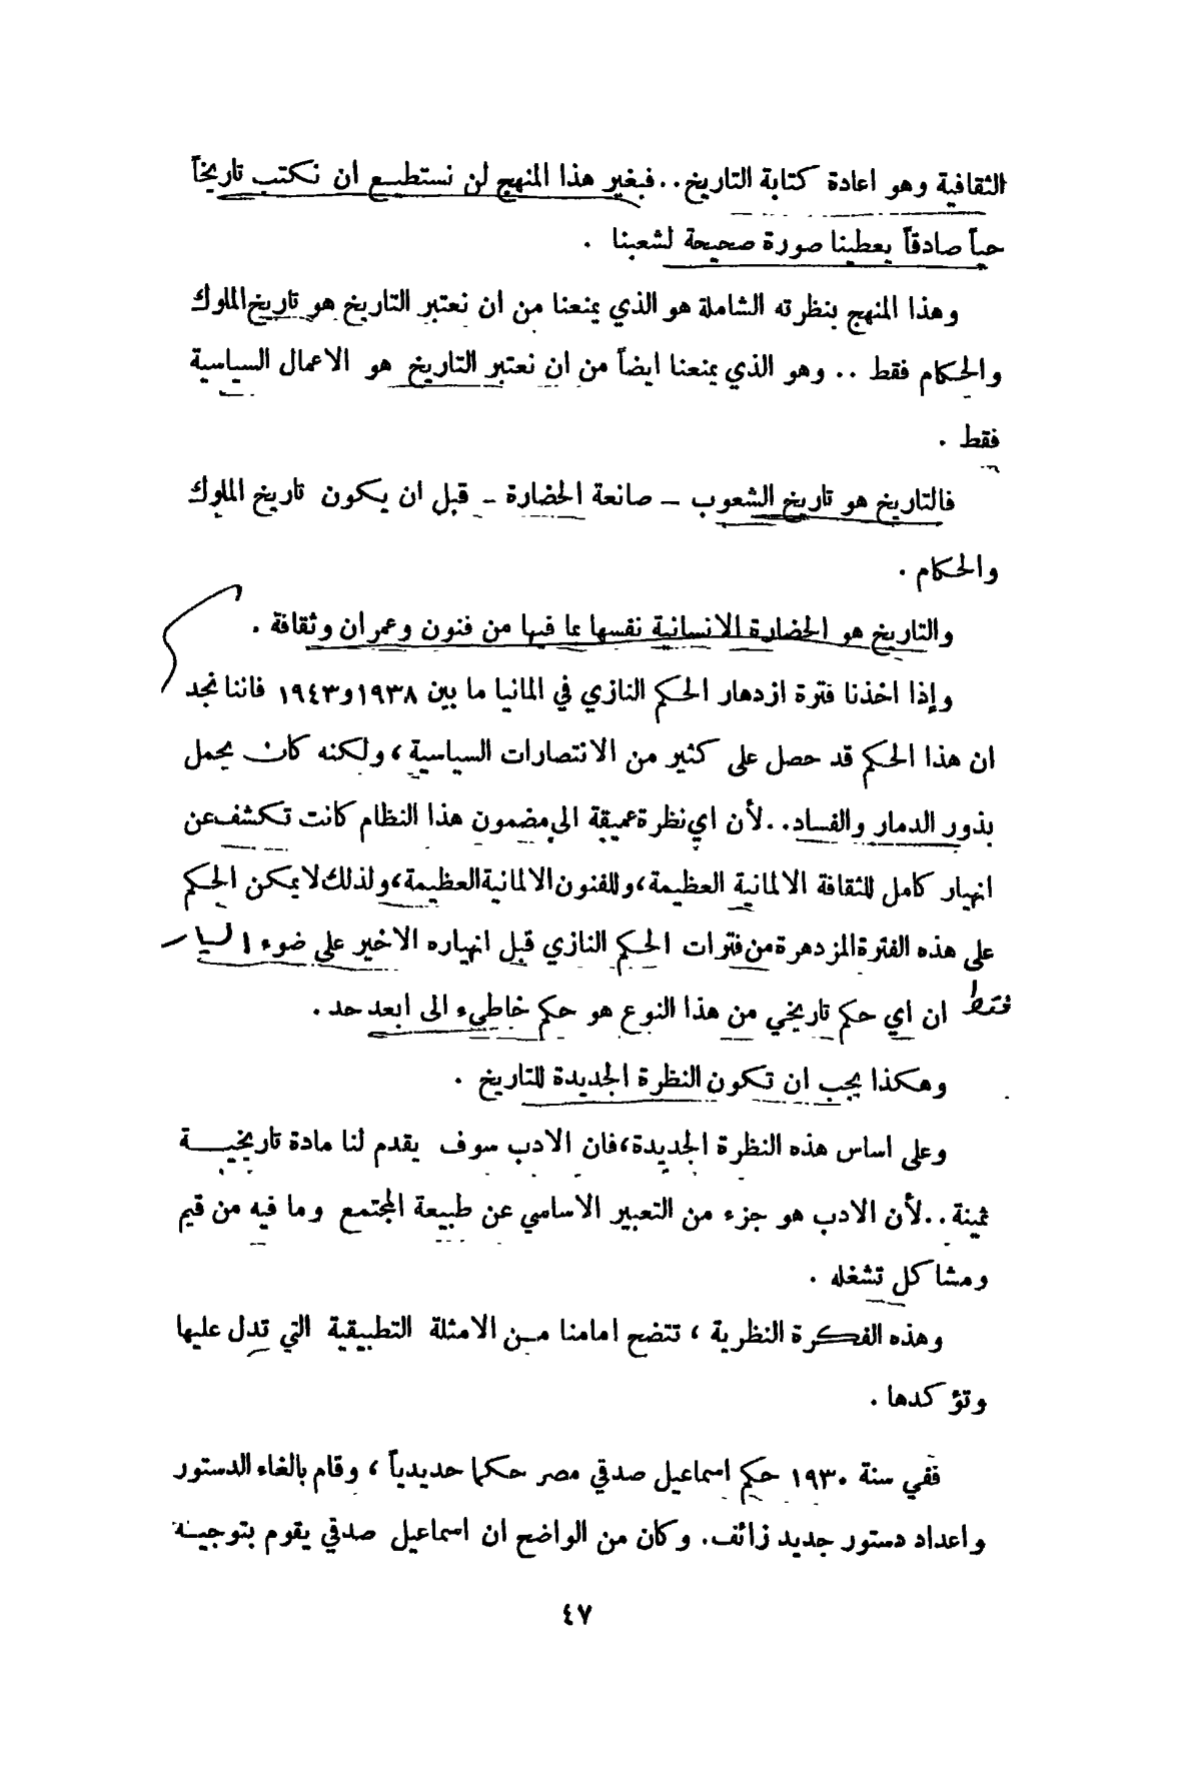 الثقافية وهو اعادة كتابة التاريخ..فبغير هذا المنهج لن نستطيع ان نكتب تاريخاً
حياً صادقاً يعطينا صورة صحيحة لشعبنا .
وهذا المنهج بنظرته الشاملة هو الذي يمنعنا من ان نعتبر التاريخ هو تاريخ الملوك
والحكام فقط .. وهو الذي يمنعنا ايضاً من ان نعتبر التاريخ هو الاعمال السياسية
فقط .
فالتاريخ هو تاريخ الشعوب – صانعة الحضارة – قبل ان يكون تاريخ الملوك
والحكام .
والتاريخ هو الحضارة الانسانية نفسها بما فيها من فنون وعمران وثقافة .
وإذا اخذنا فترة ازدهار الحكم النازي في المانيا ما بين ١٩٣٨و١٩٤٣ فاننا نجد
ان هذا الحكم قد حصل على كثير من الانتصارات السياسية ، ولكنه كان يحمل
بذور الدمار والفساد..لأن اي نظرة عميقة الى مضمون هذا النظام كانت تكشف عن
انهيار كامل للثقافة الالمانية العظيمة، وللفنون الالمانية العظيمة، ولذلك لا يمكن الحكم
على هذه الفترة المزدهرة من فترات الحكم النازي قبل انهياره الاخير على ضوء
فقط ان اي حكم تاريخي من هذا النوع هو حكم خاطيء الى ابعد حد .
وهكذا يجب ان تكون النظرة الجديدة للتاريخ .
وعلى اساس هذه النظرة الجديدة، فان الادب سوف يقدم لنا مادة تاريخيـــة
ثمينة..لأن الادب هو جزء من التعبير الاساسي عن طبيعة المجتمع وما فيه من قيم
ومشاكل تشغله .
وهذه الفكرة النظرية ، تتضح امامنا مـن الامثلة التطبيقية التي تدل عليها
وتؤكدها .
ففي سنة ١٩٣٠ حكم اسماعيل صدقي مصر حكما حديدياً ، وقام بالغاء الدستور
واعداد دستور جديد زائف. وكان من الواضح ان اسماعيل صدقي يقوم بتوجيـه
٤٧